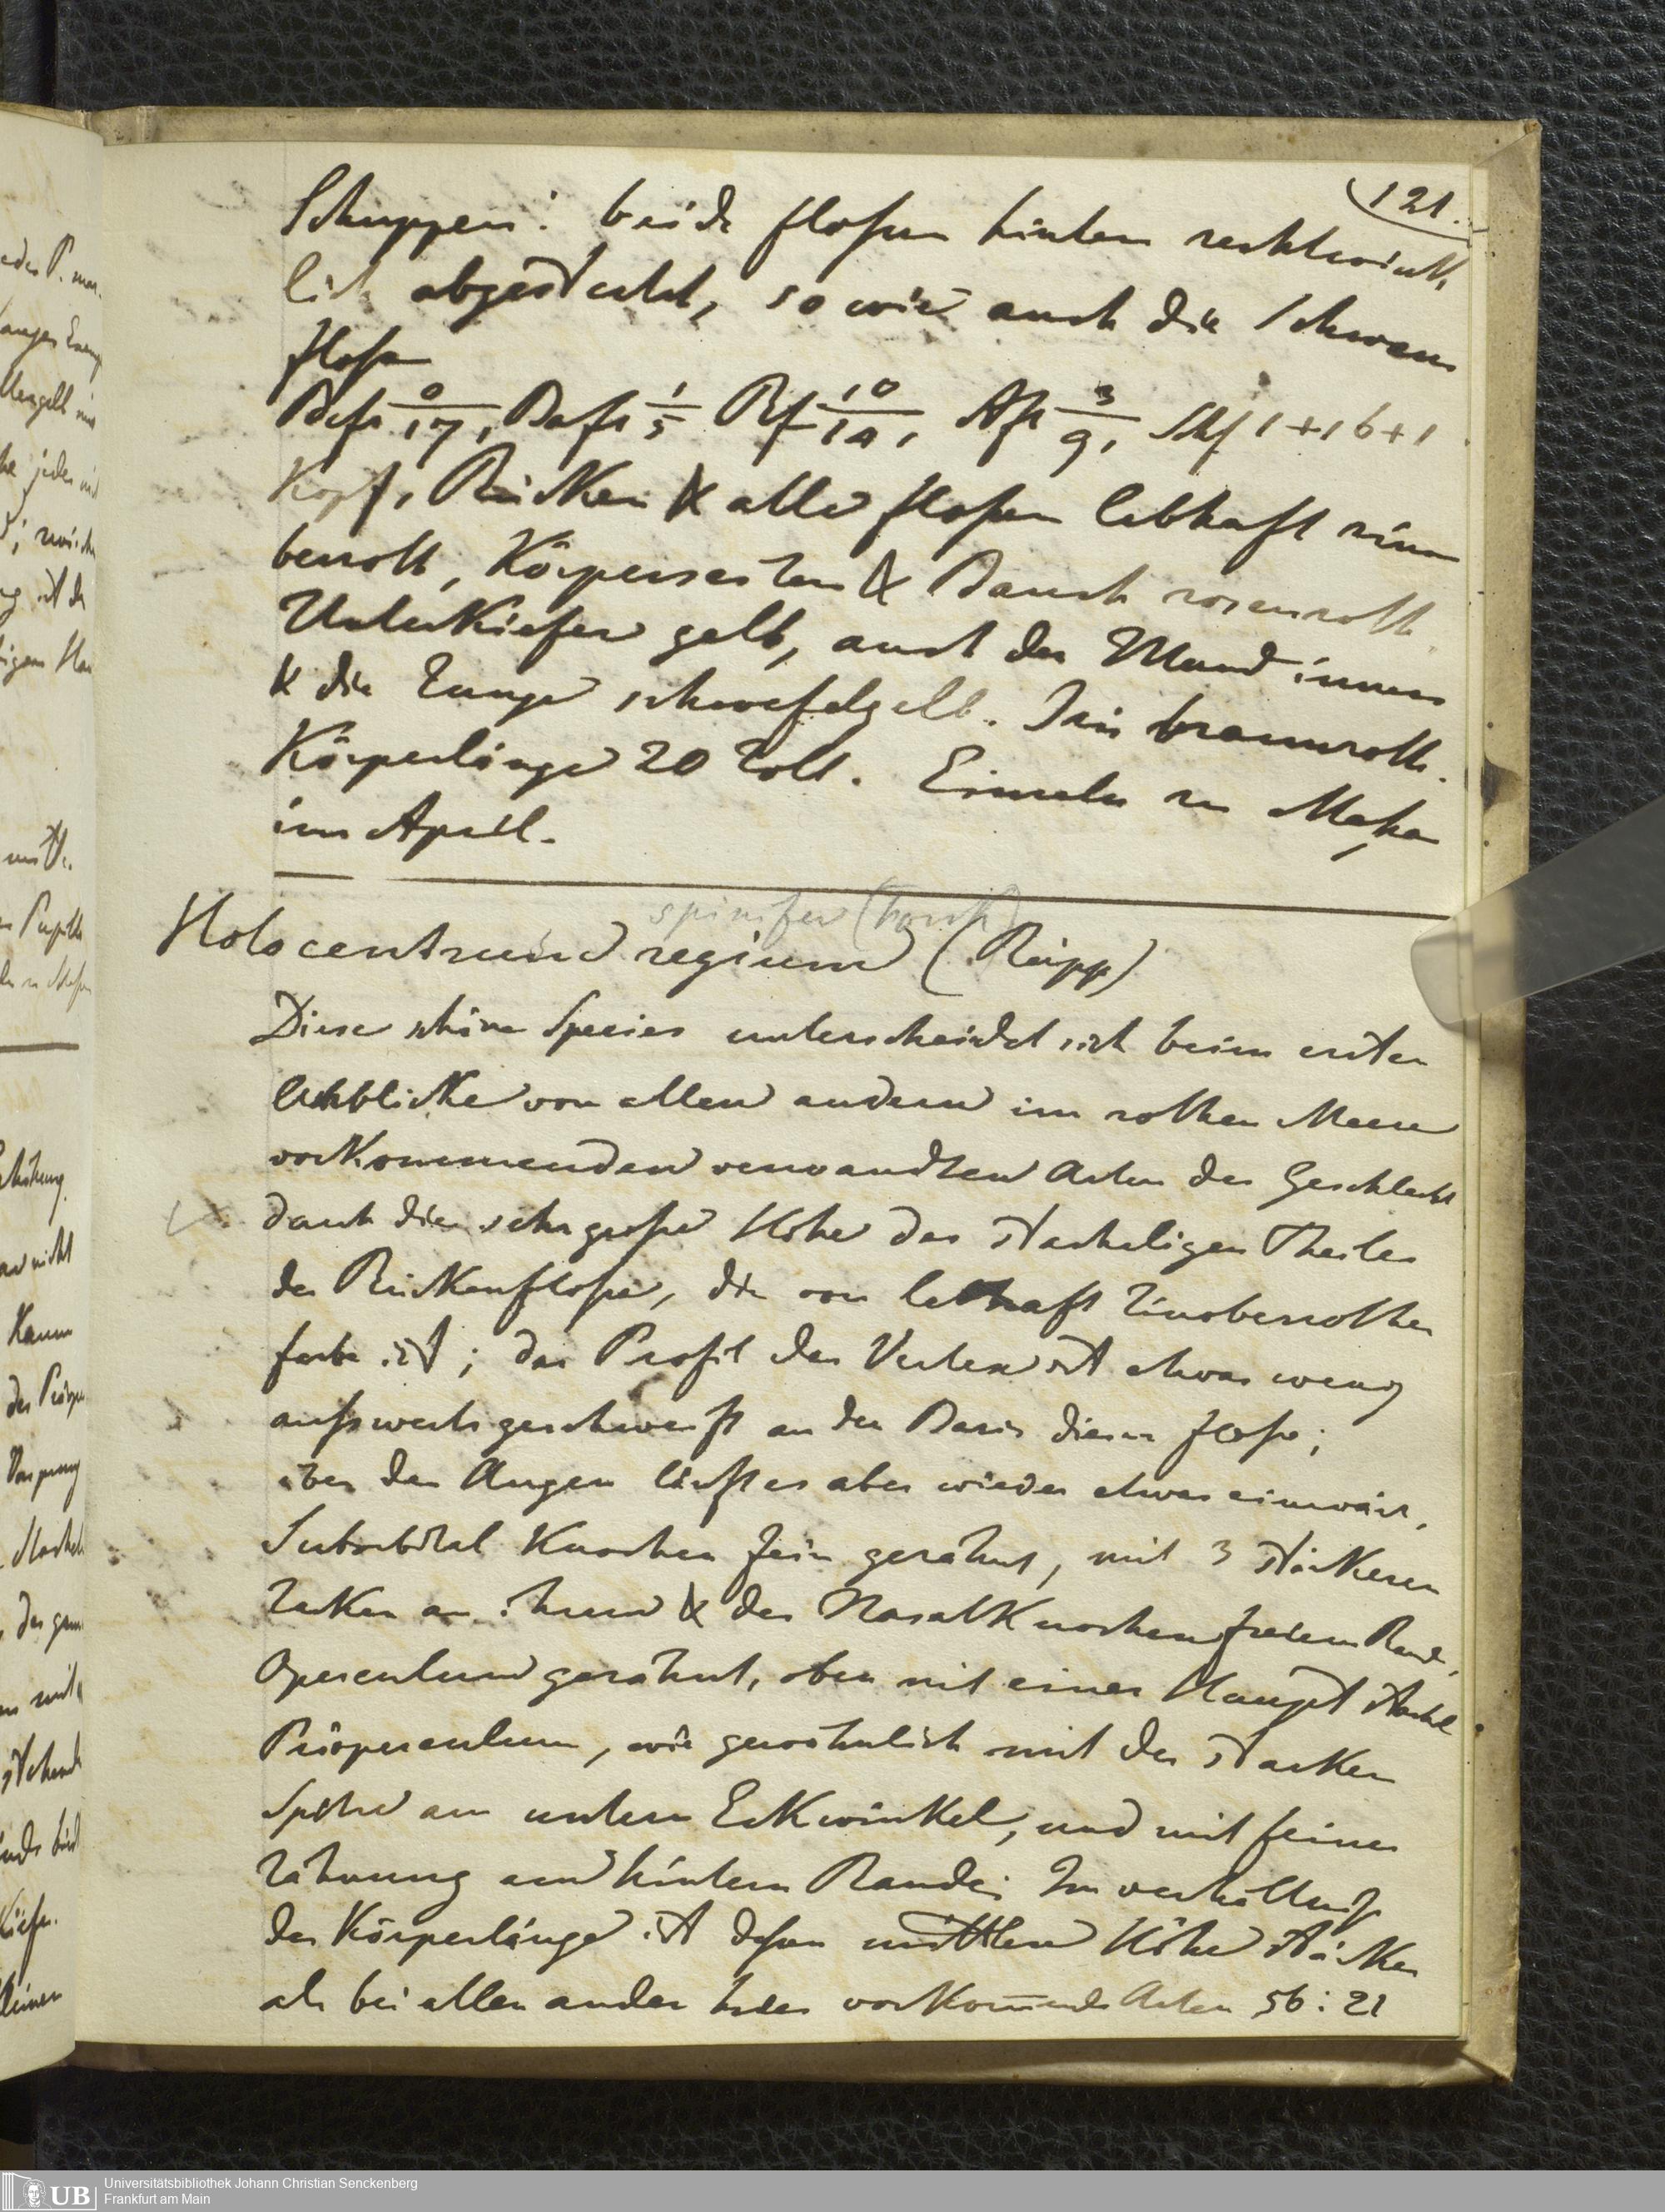 121.
Schuppen: beide flossen hinten rechtwink
lich abgestutzt, so wie auch die Schwanz
flosse
Bf 17, 1/5 10/14, Af 3/9, Shf 1+16+1
Kopf, Rücken & alle flossen lebhaft zinno
berroth, Körperseiten & Bauch rosenroth
Unterkiefer gelb, auch der Mund innen
& die Zunge schwefelgelb. Iris braunroth.
Körperlänge 20 Zoll. Einzeln zu
im April.
spinifer (Forsk)
Holocentrum regium (Rüpp)
Diese schöne Species unterscheidet sich beim ersten
von allen andern im rothen Meere
vorkommenden verwandten Arten des Geschlechts
durch die sehr grosse Höhe des stacheligen Theiles
der Rückenflosse, die von lebhaft zinoberrother
farbe ist; das Profil des Vertex ist etwas wenig
aufwerts geschweift an der Basis dieser flosse;
über den Augen läuft es aber wieder etwas einwärts,
Suborbital Knochen fein gezähnt, mit 3 stärkeren
Zacken an ihrem & des NasalKnochen freiem Rand,
Operculum gezähnt, oben mit einer Haupt Stachel
Präoperculum, wie gewöhnlich mit der starken
Spitze am untern Eckwinkel, und mit feiner
Zähnung am hintern Rande; Im verhältniss
der Körperlänge ist dessen mittlere Höhe stärker
als bei allen andern vorkommende Arten 56:21
Universitätsbibliothek Johann Christian Senckenberg
Frankfurt am Main
UB